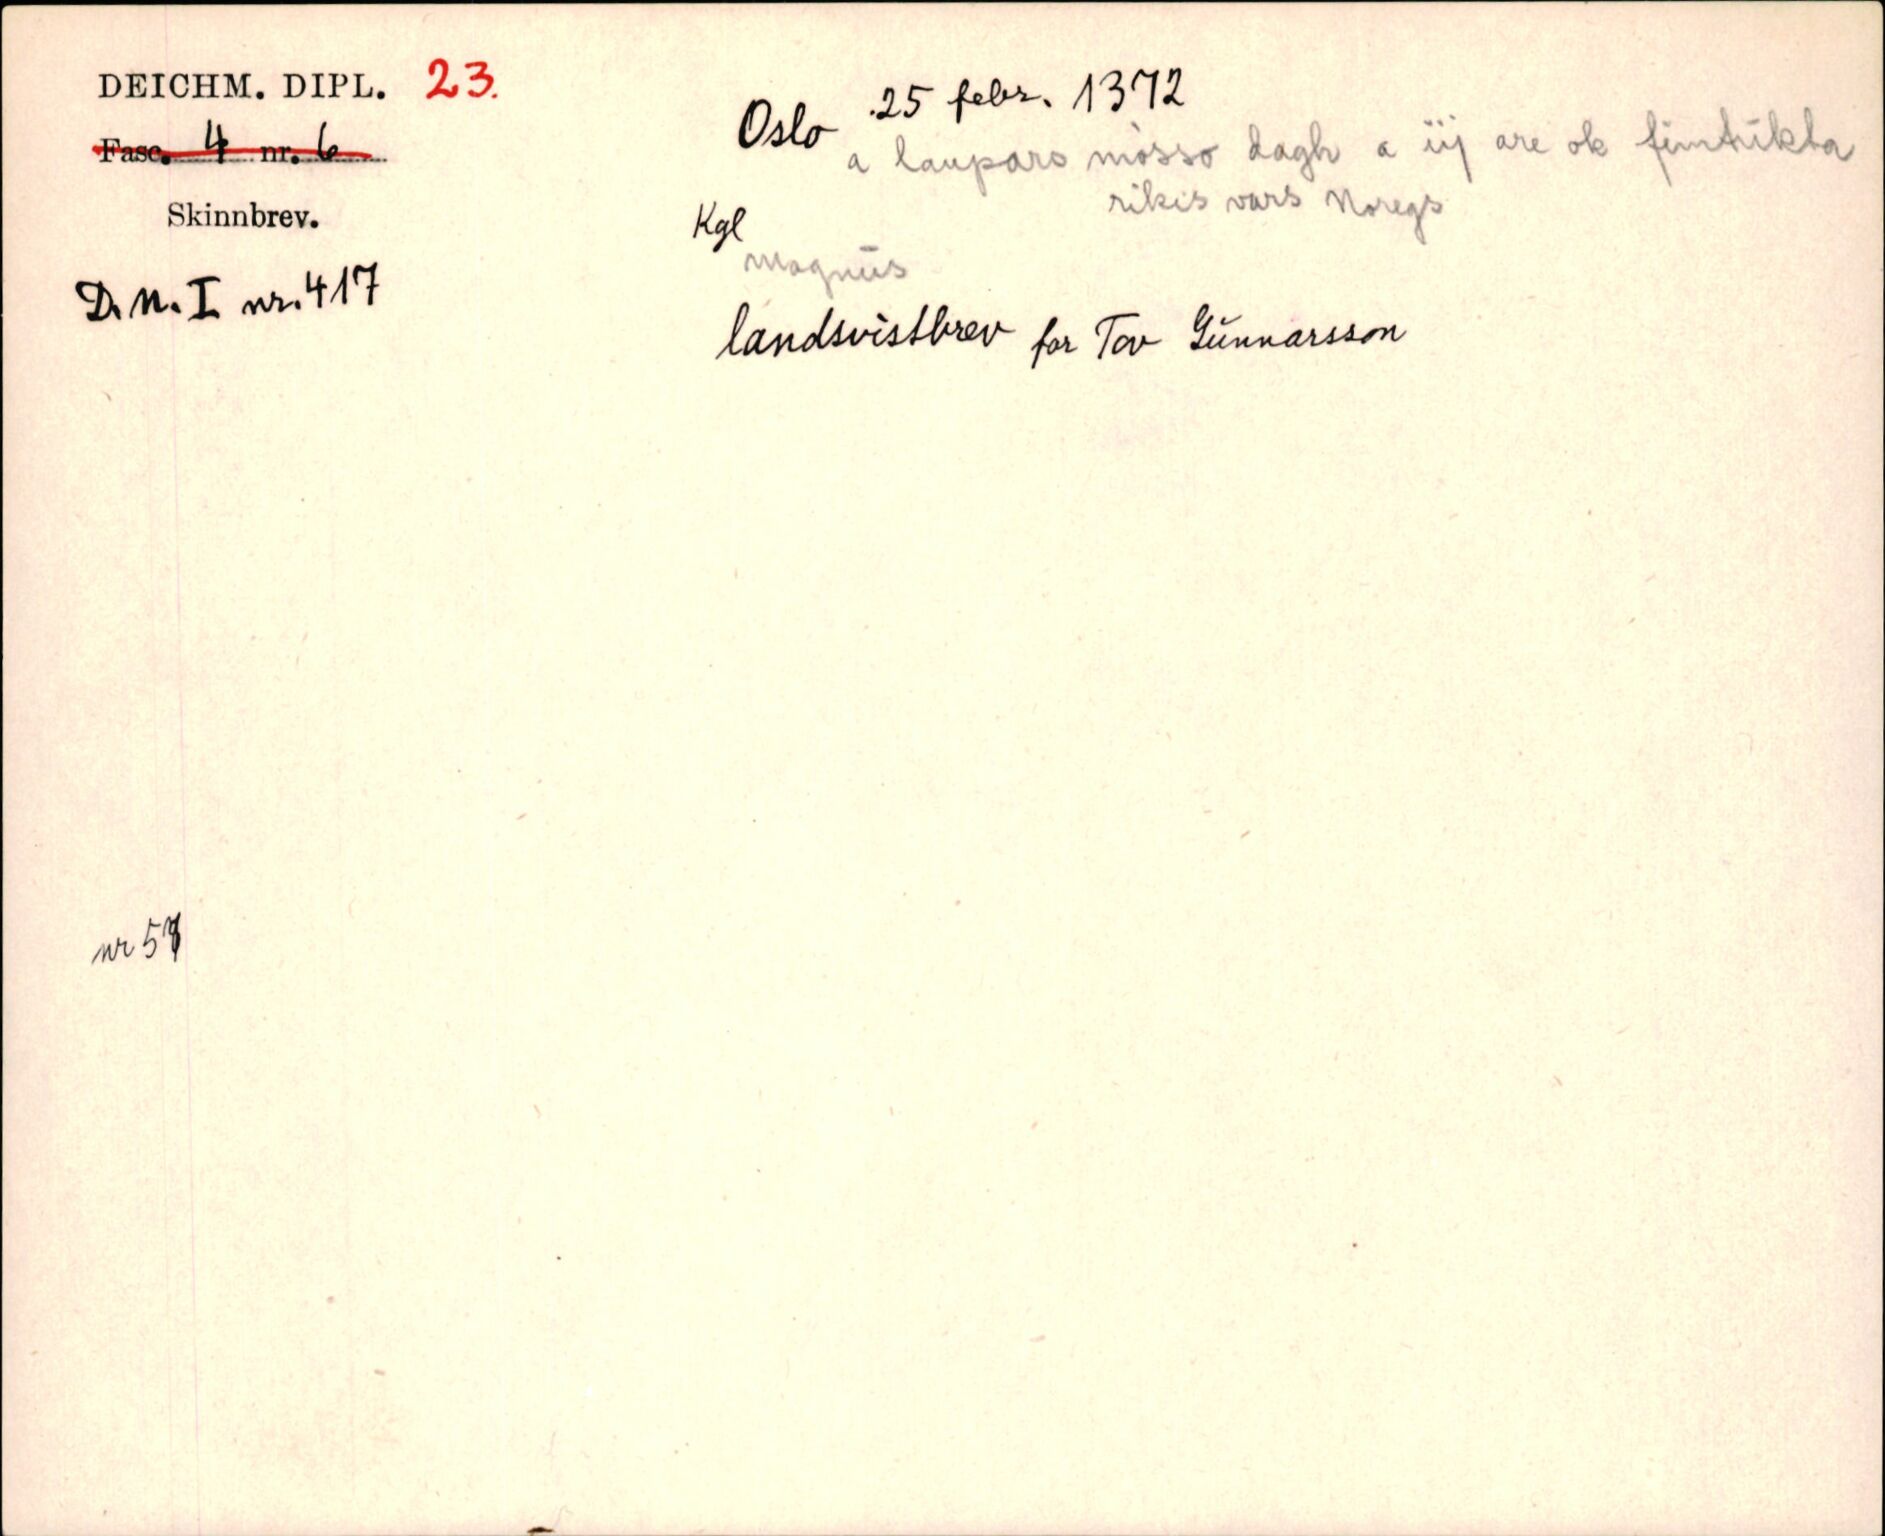 DEICHM. DIPL. 23.
Fasc. 4 nr. 6
Skinnbrev.
D.N.I nr. 417
Oslo 25 febr. 1372
a laupars mòsso dagh a iij are ok fimtukta
rikis vars Noregs
Kgl
Magnus
landsvistbrev for Tov Gŭnnarsson
nr 57